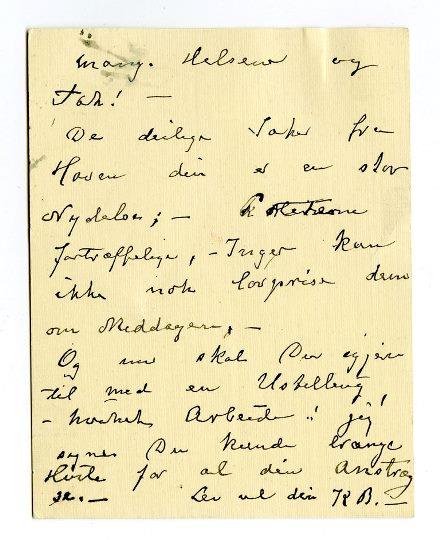 mang. Helsener og
Takk! —
De deilige Saker fra
Haven din er en stor
Nydelse; —
fortræffelige, – Inger kan
ikke nok lovprise dem
om Middagen, —
Og nu skal Du igjen
til med en Ustilling
– hvilket Arbeide! jeg
synes Du kunde trænge
Hvile for al din Anstræng
se. — Lev vel din K B. —